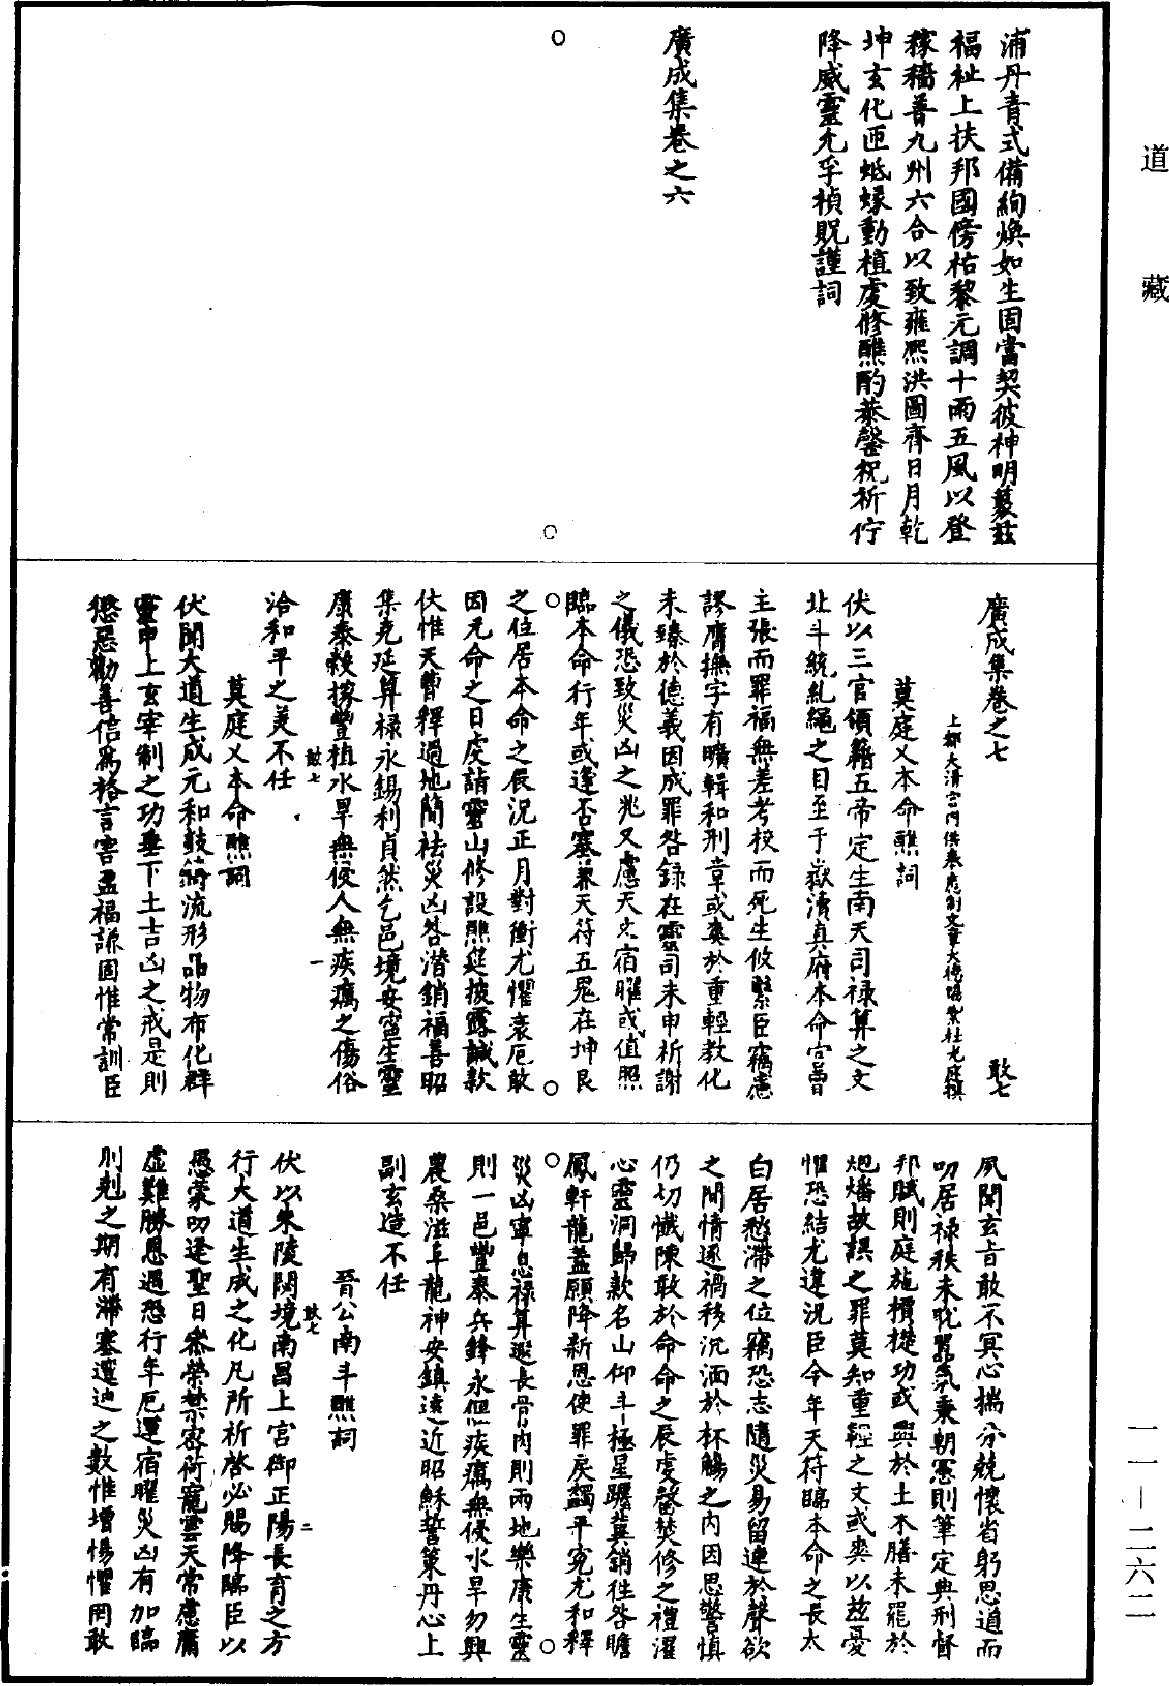 道藏
浦丹青式備絢煥如生固當契彼神明蓑茲
福祉上扶邦國傍祐黎元調十雨五風以登
稼穡普九州六合以致雍熙洪圖齊日月乾
坤玄化匝蚳蝝動植虔修醮酌恭罄祝祈佇
降威靈允孚禎貺謹詞
廣成集卷之六
廣成集卷之七
敢七
上都太清宮內供奉應制文章大德賜紫杜光庭撰
莫庭乂本命醮詞
伏以三官領籍五帝定生南天司祿算之文
北斗統糺繩之目至于嶽瀆真府本命官曹
主張而罪福無差考校而死生攸繫臣竊慮
謬膺撫字有曠輯和刑章或爽於重輕教化
未臻於德義因成罪咎錄在靈司未申祈謝
之儀恐致災凶之兆又慮天文宿曜或值照
臨本命行年或逢否塞兼天符五鬼在坤艮
之位居本命之辰況正月對衝尤懼衰厄敢
因元命之日虔詣靈山修設醮筵披露誠款
伏惟天曹釋過地簡祛災凶咎潛銷福善昭
集克延算祿永錫利貞然乞邑境安寧生靈
康泰穀稼豐植水旱無侵人無疾癘之傷俗
敢七 一
洽和平之美不任
莫庭乂本命醮詞
伏聞大道生成元和鼓鑄流形品物布化群
靈申上玄宰制之功垂下土吉凶之戒是則
懲惡勸善信爲格言害盈福謙固惟常訓臣
夙聞玄旨敢不冥心揣分兢懷省躬思道而
叨居祿秩未戢囂氛秉朝憲則筆定典刑督
邦賦則庭施檟楚功或興於土木膳未罷於
炮燔故誤之罪莫知重輕之文或爽以茲憂
惟恐結尤違況臣今年天符臨本命之長太
白居愁滯之位竊恐志隨災易留連於聲欲
之間情逐禍移沉湎於杯觴之內因思警慎
仍切懺陳敢於命命之辰虔罄焚修之禮濯
心靈洞歸款名山仰斗極星躔冀銷徃咎瞻
鳳軒龍蓋願降新恩使罪戾蠲平寃尤和釋
災凶寧息祿算遐長骨肉則兩地樂康生靈
則一邑豐泰兵鋒永偃疾癘無侵水旱勿興
農桑滋阜龍神安鎮遠近昭穌誓策丹心上
副玄造不任
晉公南斗醮詞
敢七 二
伏以朱陵閟境南昌上宮御正陽長育之方
行大道生成之化凡所祈啓必賜降臨臣以
愚蒙叨逢聖日叅榮禁密荷寵雲天常慮膺
虛難勝恩遇恐行年厄運宿曜災凶有加臨
刑剋之期有滯塞邅迍之數惟增惕懼罔敢
一一—二六二